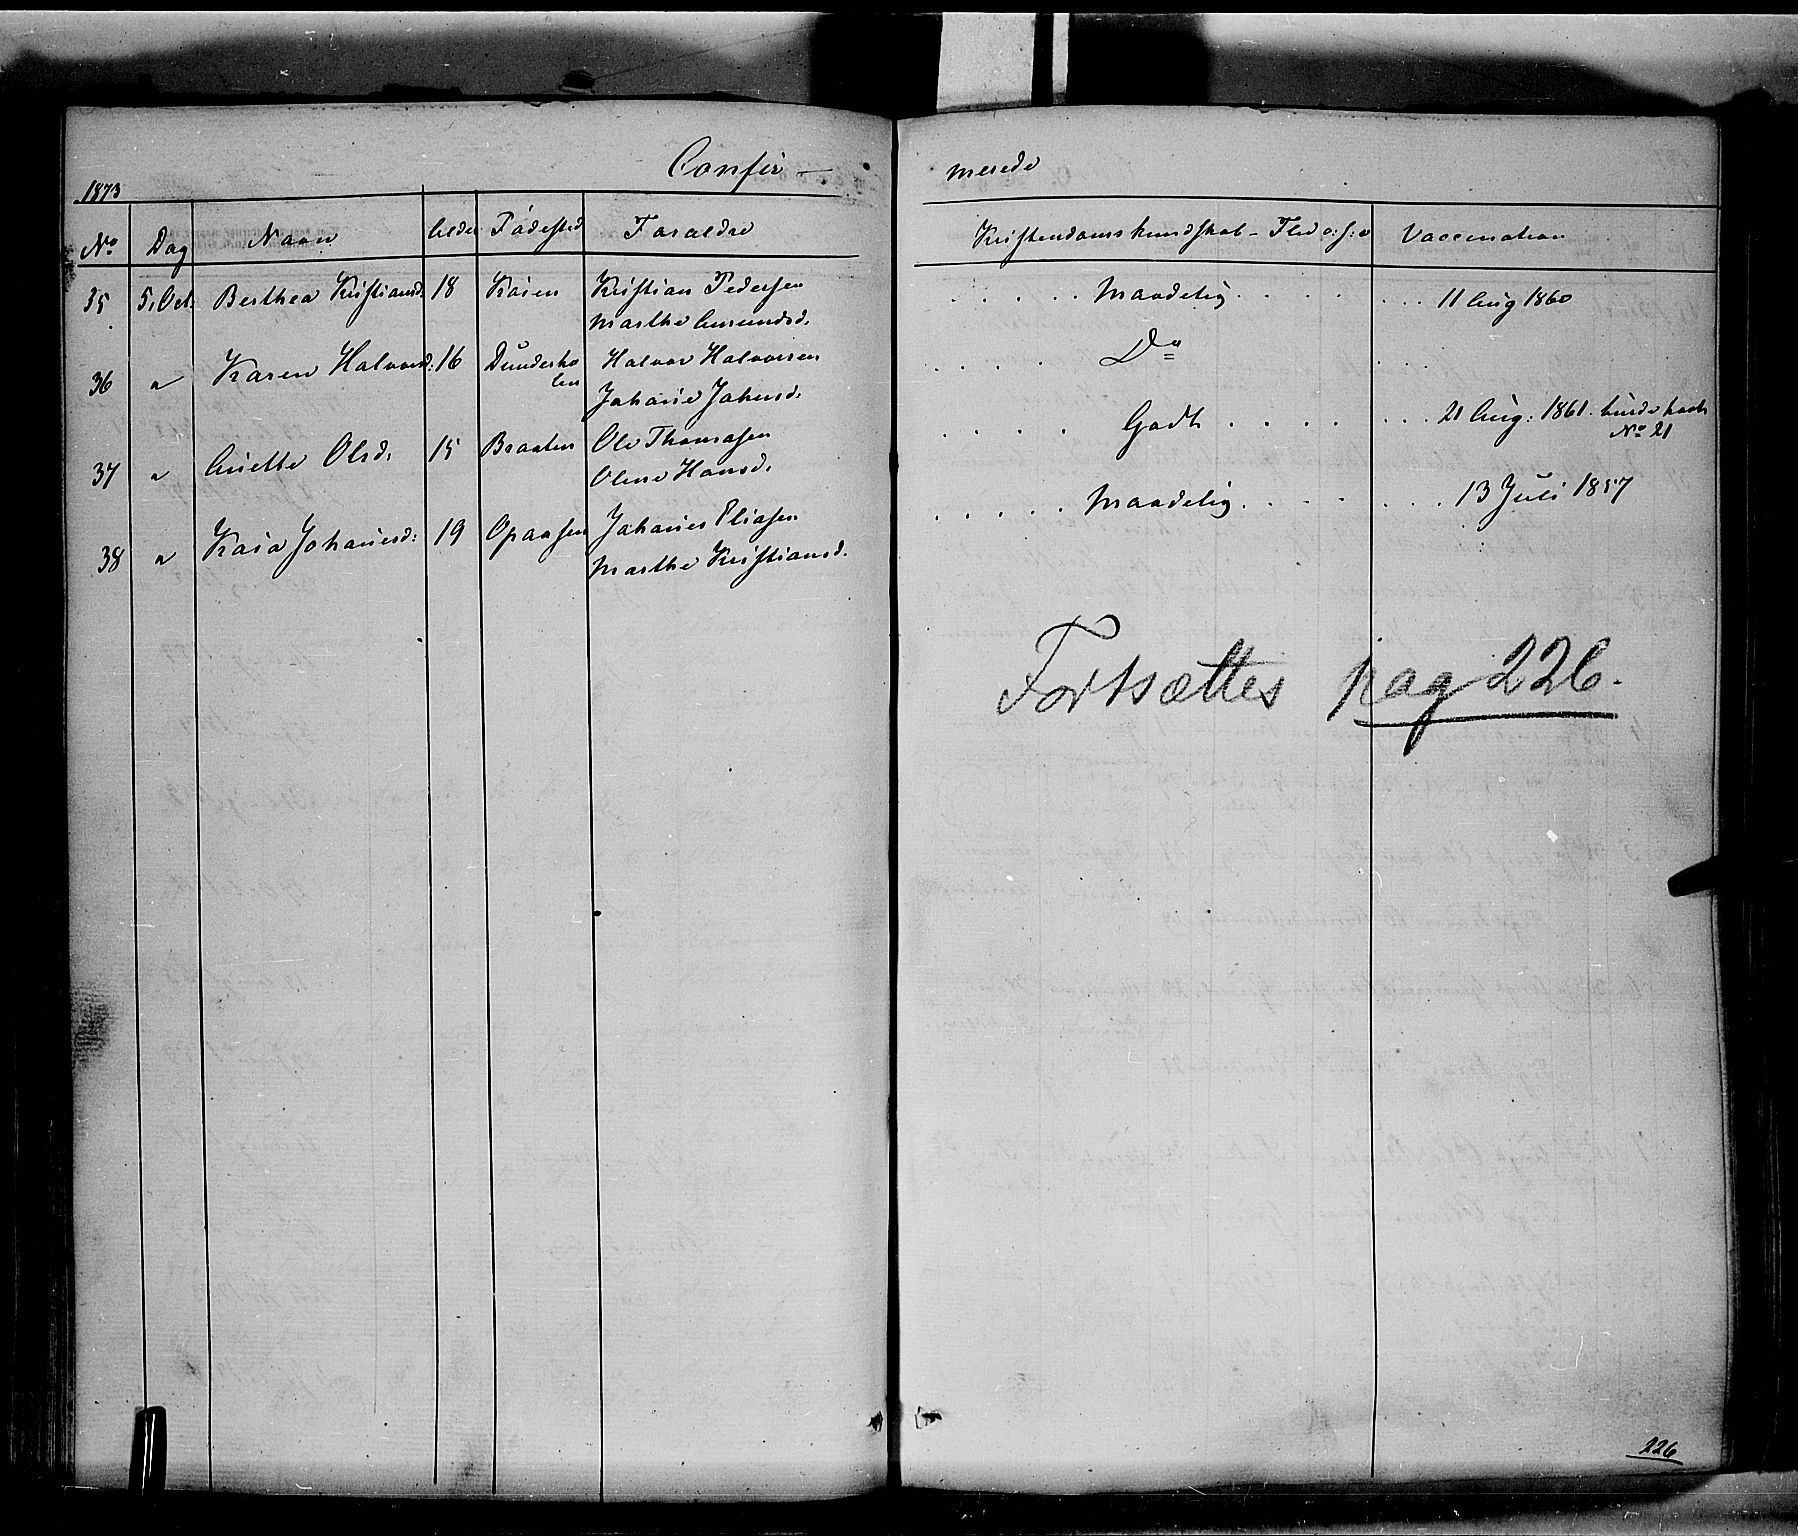 Confir-
merede
1873
No Dag Navn Alder Fødested Forældre
Kristendomskundskab - Flid o: s: v Vaccination
35 5. Oct. Berthea Kristiansd: 18 Kristian Pedersen
Marthe Amundsd.
Maadelig 11 Aug 1860
36 " Karen Halvorsd: 16 Dunderho
len
Halvor Halvorsen
Johanne Johnsd.
Do
37 " Anette Olsd. 15 Braaten Ole Thomasen
Oline Hansd.
Godt 21 Aug: 1861.
No 21
38 " Kaia Johanesd: 19 Opaasen Johanes Eliasen
Marthe Kristiansd.
Maadelig 13 Juli 1857
Fortsættes pag 226.
226